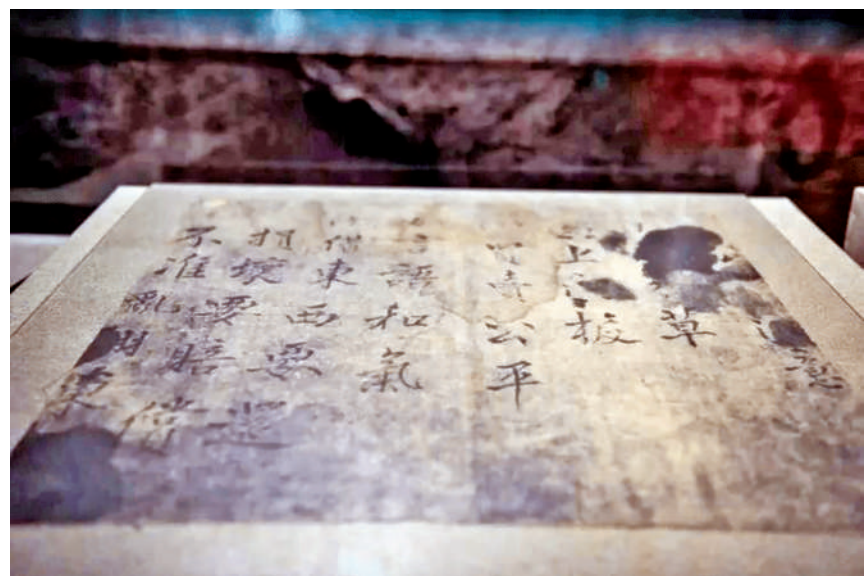 草
上門板
買賣公平
言語和氣
借東西要還
損壞要賠償
不准亂